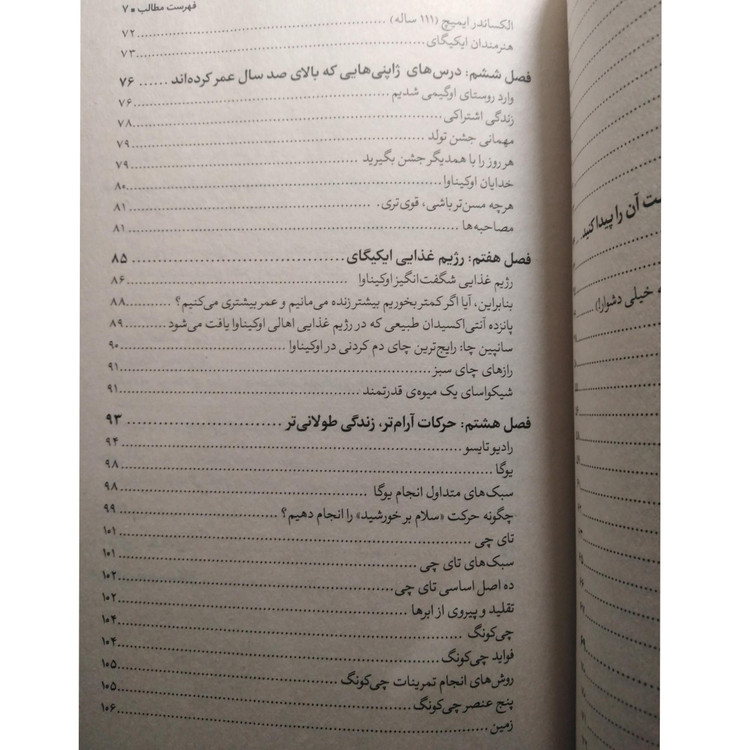 فهرست مطالب • ۷
الکساندر ایمیچ (۱۱۱ ساله) ۷۲
هنرمندان ایکیگای ۷۳
فصل ششم: درس‌های ژاپنی‌هایی که بالای صد سال عمر کرده‌اند ۷۶
وارد روستای اوگیمی شدیم ۷۶
زندگی اشتراکی ۷۸
مهمانی جشن تولد ۷۹
هر روز را با همدیگر جشن بگیرید ۷۹
خدایان اوکیناوا ۸۰
هرچه مسن‌تر باشی، قوی‌تری ۸۱
مصاحبه‌ها ۸۱
فصل هفتم: رژیم غذایی ایکیگای ۸۵
رژیم غذایی شگفت‌انگیز اوکیناوا ۸۶
بنابراین، آیا اگر کمتر بخوریم بیشتر زنده می‌مانیم و عمر بیشتری می‌کنیم؟ ۸۸
پانزده آنتی‌اکسیدان طبیعی که در رژیم غذایی اهالی اوکیناوا یافت می‌شود ۸۹
سانپین چا: رایج‌ترین چای دم کردنی در اوکیناوا ۹۰
رازهای چای سبز ۹۱
شیکواسای یک میوه‌ی قدرتمند ۹۱
فصل هشتم: حرکات آرام‌تر، زندگی طولانی‌تر ۹۳
رادیو تایسو ۹۴
یوگا ۹۸
سبک‌های متداول انجام یوگا ۹۸
چگونه حرکت «سلام بر خورشید» را انجام دهیم؟ ۹۹
تای چی ۱۰۱
سبک‌های تای چی ۱۰۱
ده اصل اساسی تای چی ۱۰۲
تقلید و پیروی از ابرها ۱۰۲
چی‌کونگ ۱۰۴
فواید چی‌کونگ ۱۰۴
روش‌های انجام تمرینات چی‌کونگ ۱۰۵
پنج عنصر چی‌کونگ ۱۰۵
زمین ۱۰۶
ت آن را پیدا کنید
ه خیلی دشوار!)